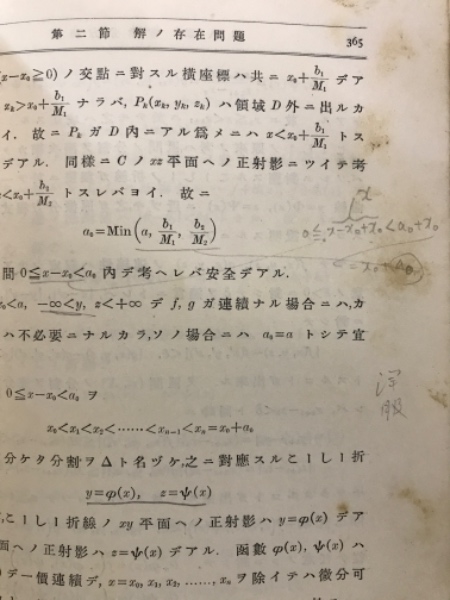 第二節 解ノ存在問題 365
x−x₀≧0) ノ交點ニ對スル橫座標ハ共ニ x₀+b₁/M₁ デア
zₖ>x₀+b₁/M₁ ナラバ, Pₖ(xₖ, yₖ, zₖ) ハ領域 D 外ニ出ルカ
イ. 故ニ Pₖ ガ D 內ニアル爲メニハ x<x₀+b₁/M₁ トス
デアル. 同樣ニ C ノ xz 平面ヘノ正射影ニツイテ考
<x₀+b₂/M₂ トスレバヨイ. 故ニ
x
0≦x−x₀+x₀<a₀+x₀
a₀=Min(a, b₁/M₁, b₂/M₂)
=x₀+a₀
間 0≦x−x₀<a₀ 內デ考ヘレバ安全デアル.
x₀<a, −∞<y, z<+∞ デ f, g ガ連續ナル場合ニハ,カ
ハ不必要ニナルカラ,ソノ場合ニハ a₀=a トシテ宜
洋服
0≦x−x₀<a₀ ヲ
x₀<x₁<x₂<……<xₙ₋₁<xₙ=x₀+a₀
分ケタ分割ヲ Δ ト名ヅケ,之ニ對應スルこーしー折
y=φ(x), z=ψ(x)
こーしー折線ノ xy 平面ヘノ正射影ハ y=φ(x) デア
面ヘノ正射影ハ z=ψ(x) デアル. 函數 φ(x), ψ(x) ハ
デ一價連續デ, x=x₀, x₁, x₂, ……, xₙ ヲ除イテハ微分可